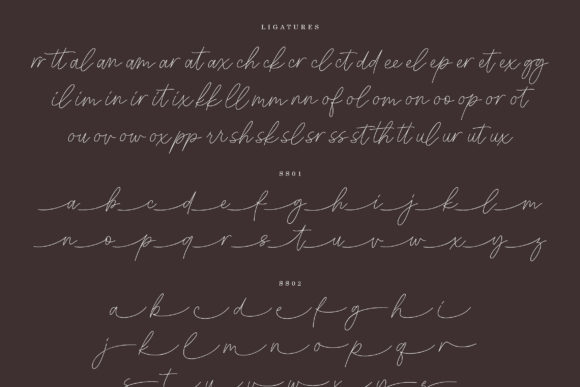 LIGATURES
rr tt al an am ar at ax ch ck cr cl ct dd ee el ep er et ex gg
il im in ir it ix kk ll mm nn of ol om on oo op or ot
ou ov ow ox pp rr sh sk sl sr ss st th tt ul ur ut ux
SS01
a b c d e f g h i j k l m
n o p q r s t u v w x y z
SS02
a b c d e f g h i
j k l m n o p q r
s t u v w x y z